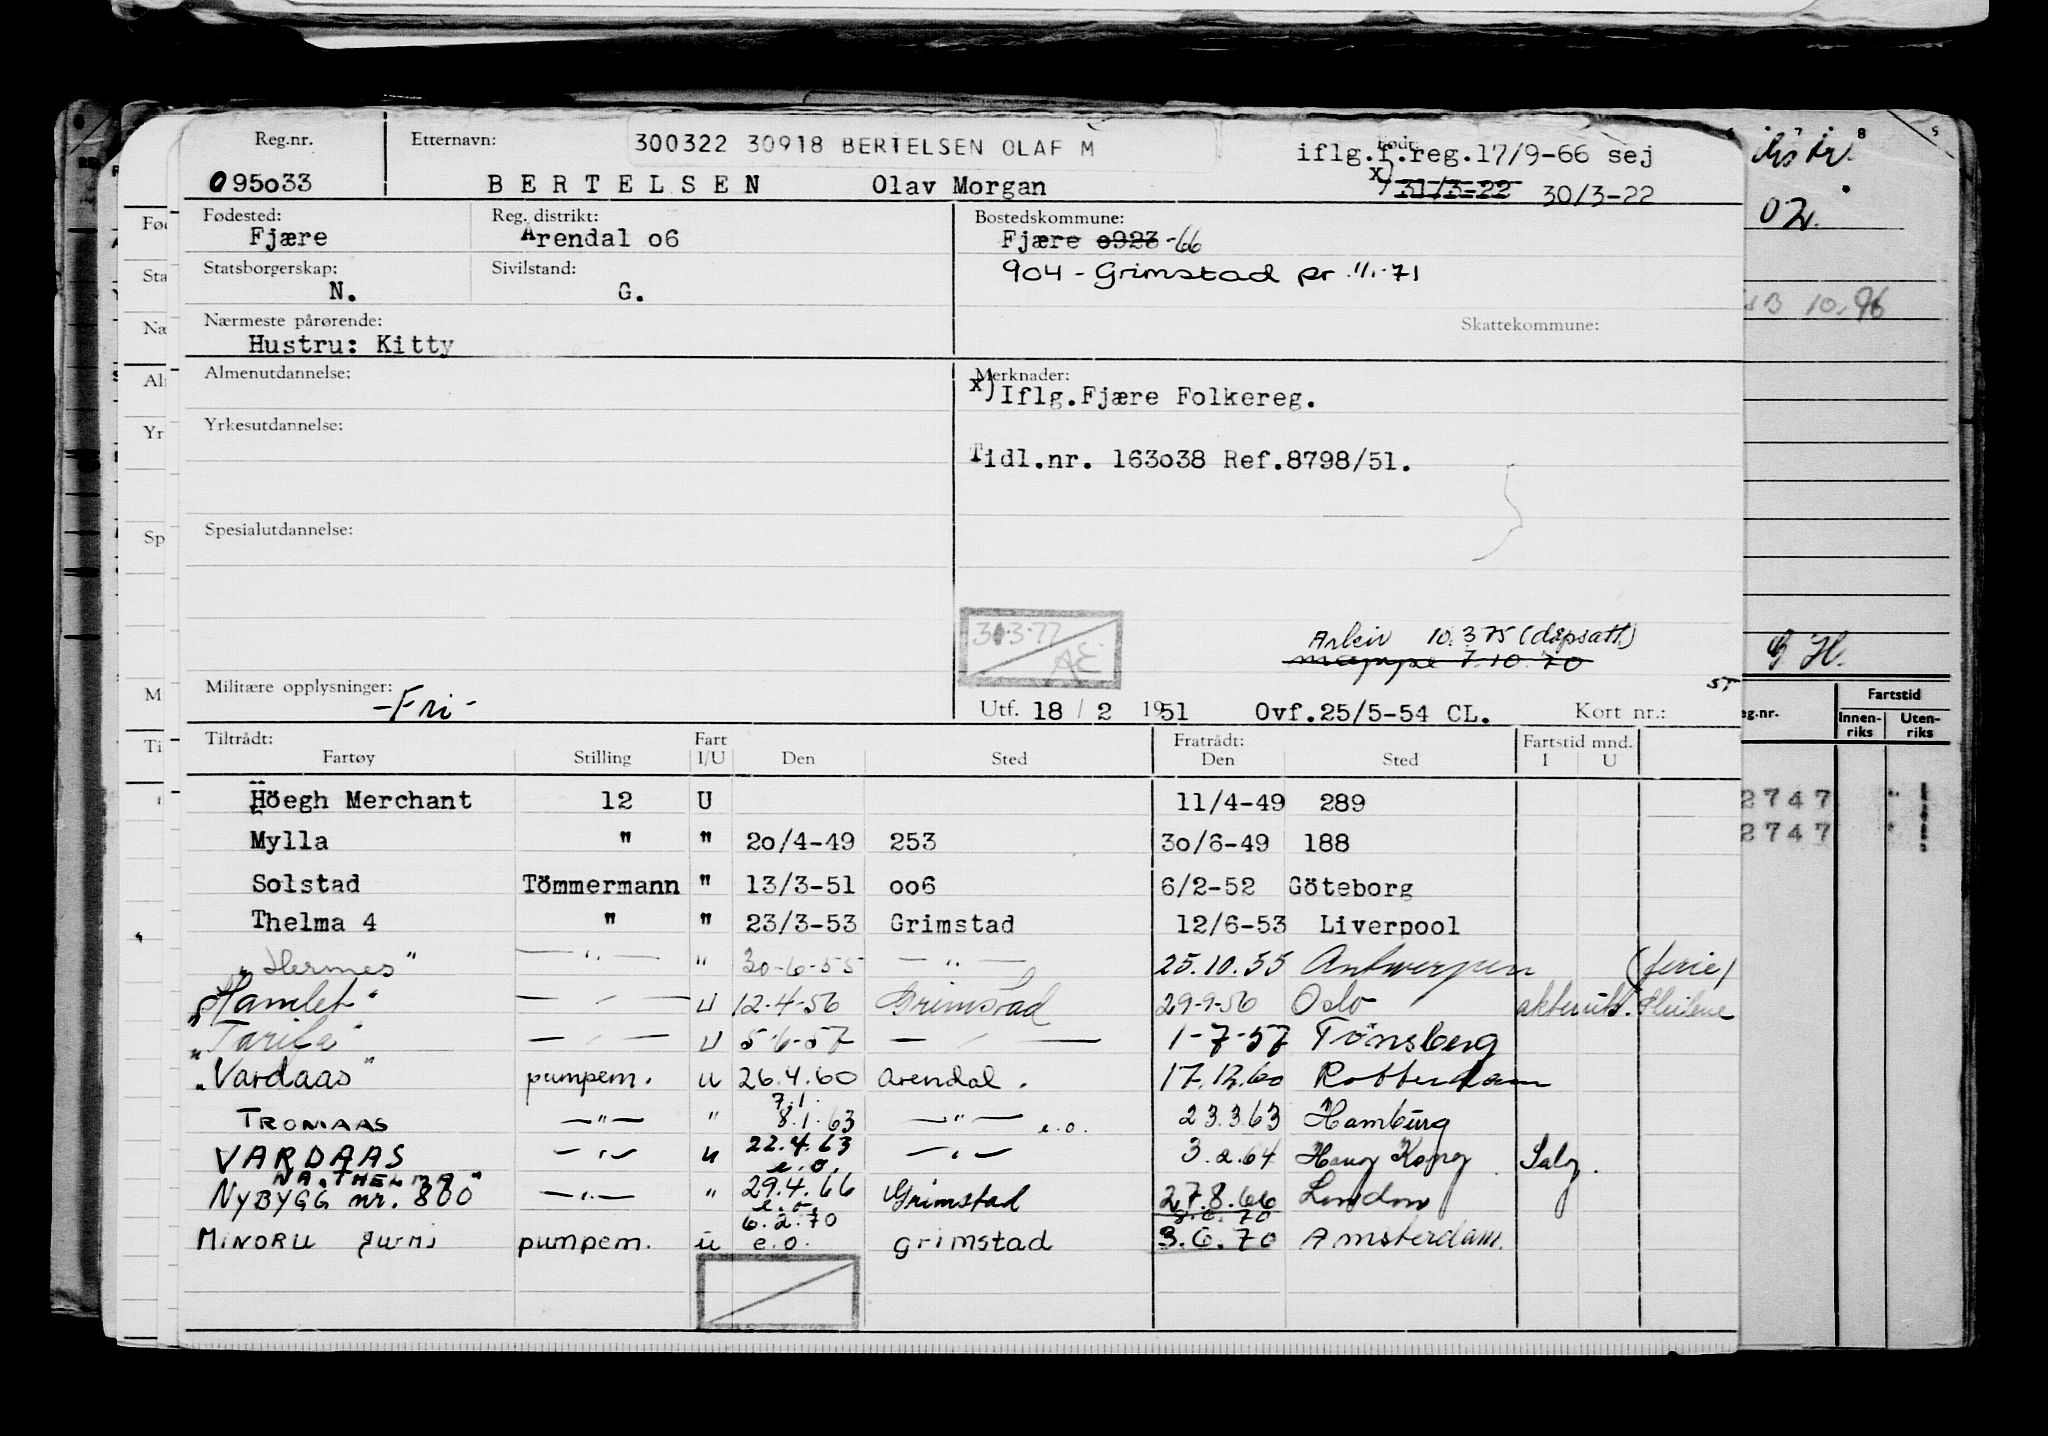 Reg.nr. Etternavn: 300322 30918 BERTELSEN OLAF M Født:
iflg.f.reg.17/9-66 sej
095o33 BERTELSEN Olav Morgan x) 31/3-22 30/3-22
Fødested: Reg. distrikt: Bostedskommune:
Fjære Arendal o6 Fjære o923 -66
Statsborgerskap: Sivilstand: 904 - Grimstad pr 1/1-71
N. G.
Nærmeste pårørende: Skattekommune:
Hustru: Kitty
Almenutdannelse: Merknader:
x) Iflg.Fjære Folkereg.
Yrkesutdannelse:
Tidl.nr. 163o38 Ref.8798/51.
Spesialutdannelse:
Arkiv 10.3.75 (dspsatt)
mappe 7.10.70
Militære opplysninger: -Fri-
Utf. 18 / 2 1951 Ovf.25/5-54 CL. Kort nr.:
Tiltrådt: Fart Fratrådt: Fartstid mnd.
Fartøy Stilling I/U Den Sted Den Sted I U
Höegh Merchant 12 U 11/4-49 289
Mylla " " 2o/4-49 253 3o/6-49 188
Solstad Tömmermann " 13/3-51 oo6 6/2-52 Göteborg
Thelma 4 " " 23/3-53 Grimstad 12/6-53 Liverpool
"Hermes" —"— " 30-6-55 —"— 25.10.55 Antwerpen (ferie)
"Hamlet" — " — U 12-4-56 Grimstad 29-9-56 Oslo
"Tarifa" — " — U 5-6-57 — " — 1-7-57 Tönsberg
"Vardaas" pumpem. u 26.4.60 Arendal. 17.12.60 Rotterdam
7.1.
TROMAAS —"— " 8.1.63 —"— e.o. 23.3.63 Hamburg
VARDAAS —"— u 22.4.63 —"— 3.2.64 Hong Kong Salg.
e.o.
NYBYGG nr. 800 —"— " 29.4.66 Grimstad 27.8.66 London
e.o.
6.2.70
MINORU pumpem. u e.o. grimstad 3.6.70 Amsterdam.
Fartstid
Innen-riks Uten-riks
2747
2747